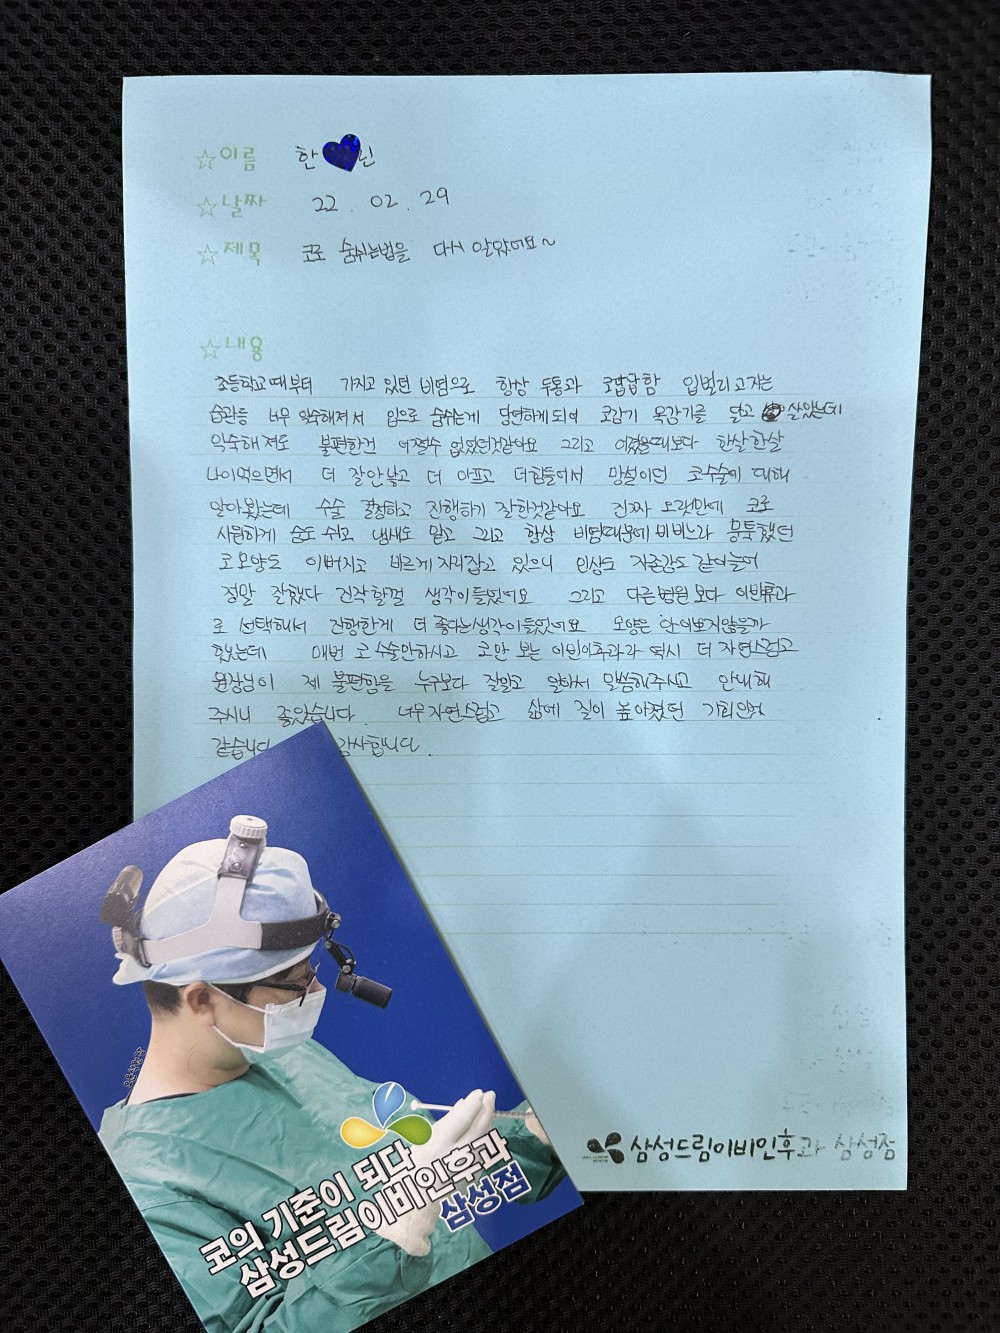 ☆이름 한 린
☆날짜 22. 02. 29
☆제목 코로 숨쉬는법을 다시 알았어요~
☆내용
초등학교때부터 가지고 있던 비염으로 항상 두통과 코답답함 입벌리고자는
습관등 너무 익숙해져서 입으로 숨쉬는게 당연하게되어 코감기 목감기를 달고 살았는데
익숙해져도 불편한건 어쩔수 없었던것같아요 그리고 어렸을때보다 한살한살
나이먹으면서 더 잘안낫고 더 아프고 더힘들어서 망설이던 코수술에 대해
알아봤는데 수술 결정하고 진행하기 잘한것같아요 진짜 오랫만에 코로
시원하게 숨도 쉬고 냄새도 맡고 그리고 항상 비염때문에 흉측했던
코모양도 이뻐지고 바르게자리잡고 있으니 인상도 자존감도 같이늘어
정말 잘했다 진작할걸 생각이들었어요 그리고 다른병원보다 이비후과
로 선택해서 진행한게 더 좋다는생각이들었어요 모양은 안이쁘지않을까
했는데 매번 코수술만하시고 코만 보는 이비인후과라 역시 더 자연스럽고
원장님이 제 불편함을 누구보다 잘알고 알아서 말씀해주시고 안내해
주시니 좋았습니다. 너무자연스럽고 삶에 질이 높아졌던 기회인것
같습니다 감사합니다.
코의 기준이 되다
삼성드림이비인후과
삼성점
삼성드림이비인후과 삼성점